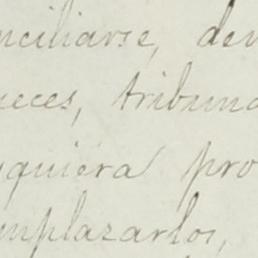 nciliarse, den
ueces, tribuna
quiera pro
mplazarlos,